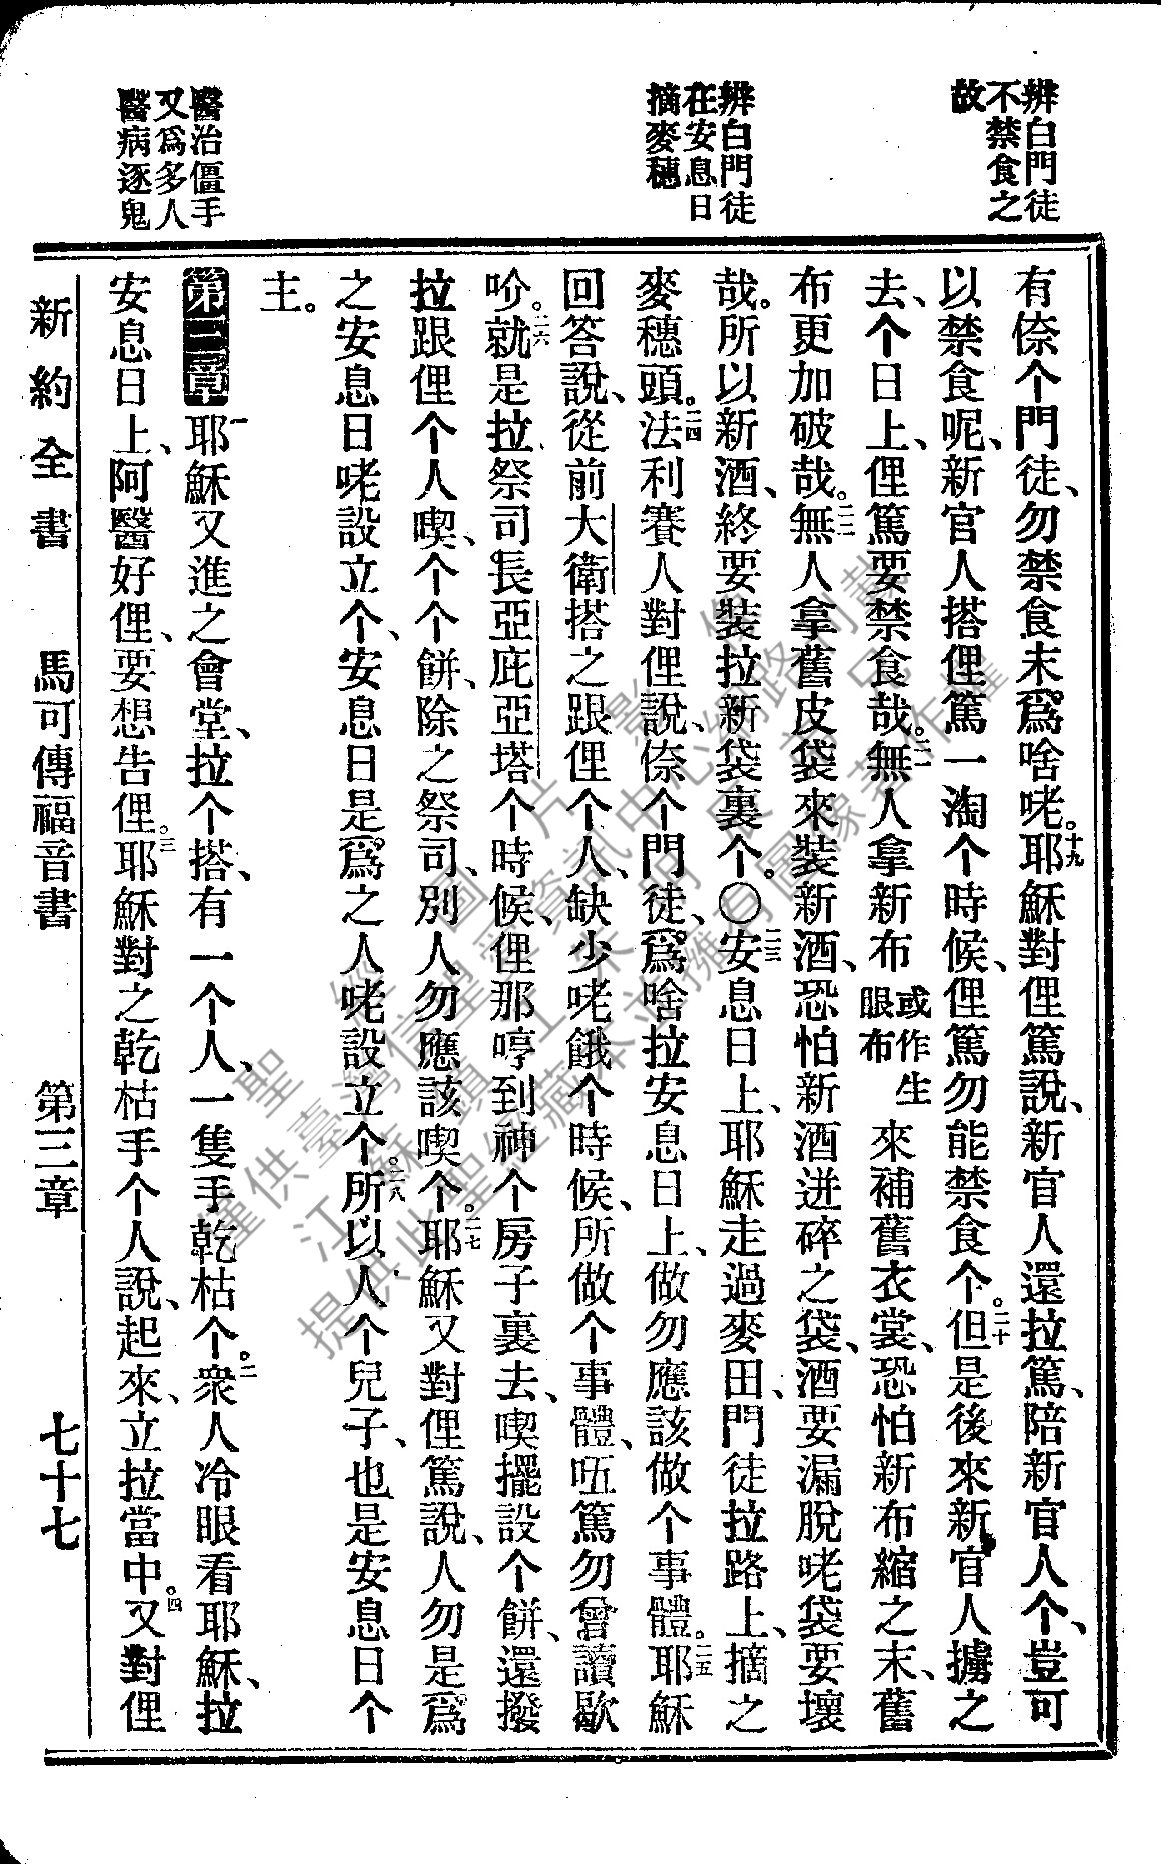 辨白門徒
不禁食之
故
辨白門徒
在安息日
摘麥穗
醫治僵手
又爲多人
醫病逐鬼
有倷个門徒、勿禁食末爲啥咾。十九耶穌對俚篤說、新官人還拉篤、陪新官人个、豈可
以禁食呢、新官人搭俚篤一淘个時候、俚篤勿能禁食个。二十但是後來新官人擄之
去、个日上、俚篤要禁食哉。二一無人拿新布或作生眼布來補舊衣裳、恐怕新布縮之末、舊
布更加破哉。二二無人拿舊皮袋來裝新酒、恐怕新酒迸碎之袋、酒要漏脫咾袋要壞
哉。所以新酒、終要裝拉新袋裏个。〇二三安息日上、耶穌走過麥田、門徒拉路上、摘之
麥穗頭。二四法利賽人對俚說、倷个門徒、爲啥拉安息日上、做勿應該做个事體。二五耶穌
回答說、從前大衛搭之跟俚个人、缺少咾餓个時候、所做个事體、㕶篤勿曾讀歇
吤。二六就是拉祭司長亞庇亞塔个時候、俚那哼到神个房子裏去、喫擺設个餅、還撥
拉跟俚个人喫、个个餅、除之祭司、別人勿應該喫个。二七耶穌又對俚篤說、人勿是爲
之安息日咾設立个、安息日是爲之人咾設立个。二八所以人个兒子、也是安息日个
主。
第三章 一耶穌又進之會堂、拉个搭、有一个人、一隻手乾枯个。二衆人冷眼看耶穌、拉
安息日上、阿醫好俚、要想告俚。三耶穌對之乾枯手个人說、起來、立拉當中。四又對俚
新約全書 馬可傳福音書 第三章 七十七
聖經圖片影像
僅供臺灣信望愛資訊中心網路刊載
江蘇鎮江朱明展市民
提供此聖經藏本並擁有圖像著作權